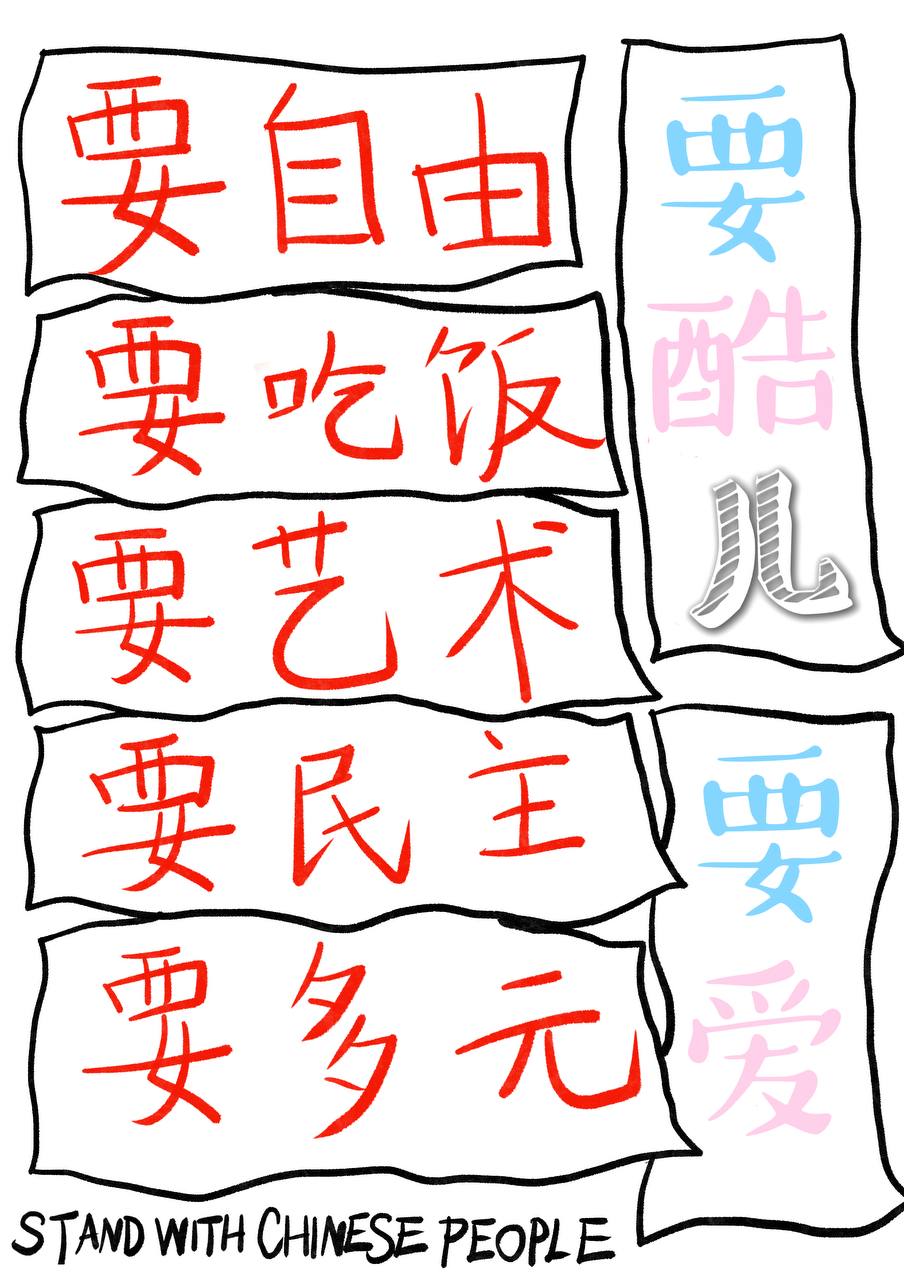 要自由
要吃饭
要艺术
要民主
要多元
要酷儿
要爱
STAND WITH CHINESE PEOPLE